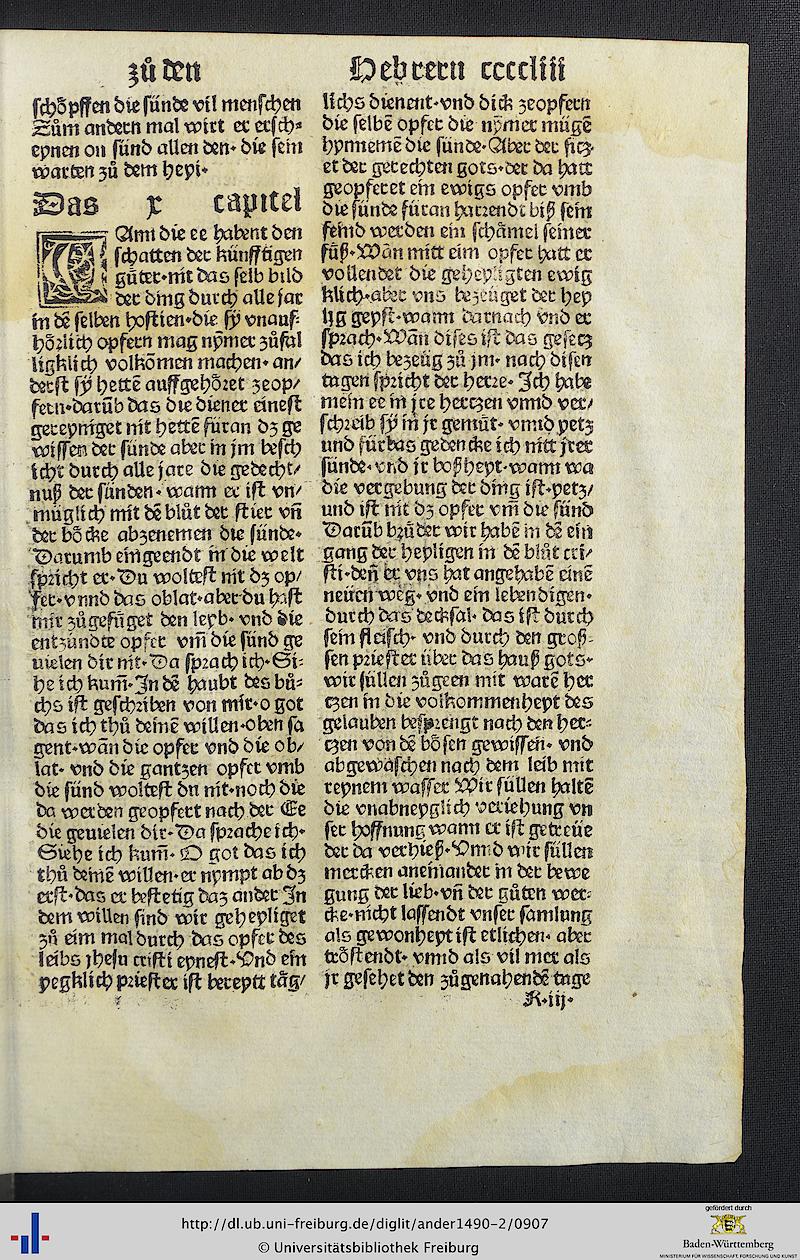 zů den
schöpffen die sünde vil menschen
Zům andern mal wirt er ersch⸗
eynen on sünd allen den· die sein
warten zů dem heyl·
Das x capitel
WAnn die ee habent den
schatten der künfftigen
gůter·nit das selb bild
der ding durch alle jar
in dē selben hostien·die sÿ vnauf⸗
hörlich opfern mag nÿmer zůfal
ligklich volkōmen machen· an/
derst sÿ hettē auffgehöret zeop/
fern·darūb das die diener einest
gereyniget nit hettē füran dz ge
wissen der sünde aber in jm besch
icht durch alle jare die gedecht/
nuß der sünden· wann er ist vn/
müglich mit dē blůt der stier vñ
der böcke abzenemen die sünde·
Darumb eingeendt in die welt
spricht er·Du woltest nit dz op/
fer·vnnd das oblat·aber du hast
mir zůgefüget den leyb· vnd die
entzündte opfer vm̄ die sünd ge
uielen dir nit·Da sprach ich·Si⸗
he ich kum̄·In dē haubt des bů⸗
chs ist geschriben von mir·o got
das ich thů deinē willen·oben sa
gent·wān die opfer vnd die ob/
lat· vnd die gantzen opfer vmb
die sünd woltest du nit·noch die
da werden geopfert nach der Ee
die geuielen dir·Da sprache ich·
Siehe ich kum̄· O got das ich
thů deinē willen·er nympt ab dz
erst·das er bestetig daz ander In
dem willen sind wir geheyliget
zů eim mal durch das opfer des
leibs jhesu cristi eynest·Vnd ein
yegklich priester ist bereytt täg/
Hebreern ccccliii
lichs dienent·vnd dick zeopfern
die selbē opfer die nÿmer mügē
hynnemē die sünde·Aber der sitz⸗
et der gerechten gots·der da hatt
geopferet ein ewigs opfer vmb
die sünde füran harrendt biß sein
feind werden ein schämel seiner
fůß·Wān mitt eim opfer hatt er
vollendet die geheyligten ewig
klich·aber vns bezeüget der hey
lig geyst·wann darnach vnd er
sprach·Wān dises ist das gesetz
das ich bezeüg zů jm· nach disen
tagen spricht der herre· Ich habe
mein ee in jre hertzen vnnd ver/
schreib sÿ in jr gemüt· vnnd yetz
und fürbas gedencke ich nitt jrer
sünde· vnd jr boßheyt·wann wa
die vergebung der ding ist·yetz/
und ist nit dz opfer vm̄ die sünd
Darūb brůder wir habē in dē ein
gang der heyligen in dē blůt cri/
sti·den̄ er vns hat angehabē einē
neüen weg· vnd ein lebendigen·
durch das decksal· das ist durch
sein fleisch· vnd durch den groß⸗
sen priester über das hauß gots·
wir süllen zůgeen mit warē her
tzen in die volkommenheyt des
gelauben besprengt nach den her⸗
tzen von dē bösen gewissen· vnd
abgewaschen nach dem leib mit
reynem wasser Wir süllen haltē
die vnabneyglich veriehung vn
ser hoffnung wann er ist getreüe
der da verhieß·Vnnd wir süllen
mercken aneinander in der bewe
gung der lieb·vñ der gůten wer⸗
cke·nicht lassendt vnser samlung
als gewonheyt ist etlichen· aber
tröstendt· vnnd als vil mer als
jr gesehet den zůgenahendē tage
K·iij·
http://dl.ub.uni-freiburg.de/diglit/ander1490-2/0907
© Universitätsbibliothek Freiburg
gefördert durch
Baden-Württemberg
MINISTERIUM FÜR WISSENSCHAFT, FORSCHUNG UND KUNST